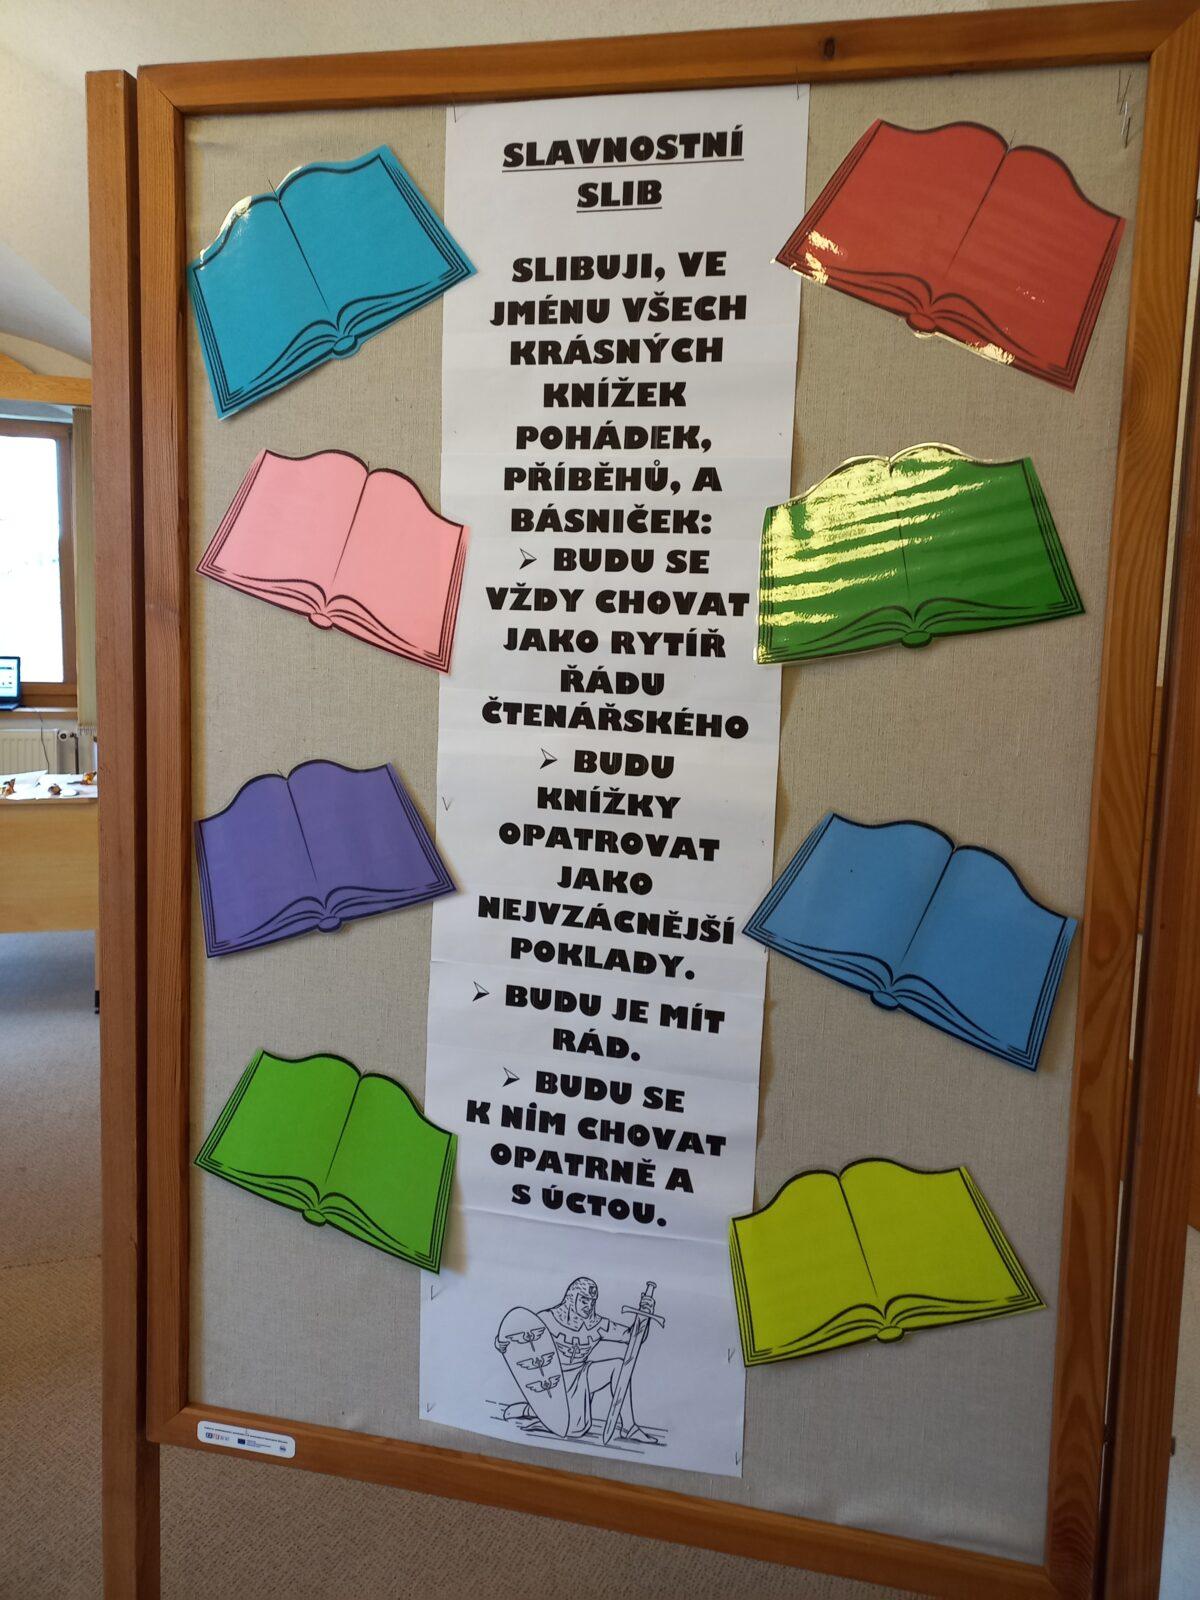 SLAVNOSTNÍ
SLIB
SLIBUJI, VE
JMÉNU VŠECH
KRÁSNÝCH
KNÍŽEK
POHÁDEK,
PŘÍBĚHŮ, A
BÁSNIČEK:
➢ BUDU SE
VŽDY CHOVAT
JAKO RYTÍŘ
ŘÁDU
ČTENÁŘSKÉHO
➢ BUDU
KNÍŽKY
OPATROVAT
JAKO
NEJVZÁCNĚJŠÍ
POKLADY.
➢ BUDU JE MÍT
RÁD.
➢ BUDU SE
K NÍM CHOVAT
OPATRNĚ A
S ÚCTOU.